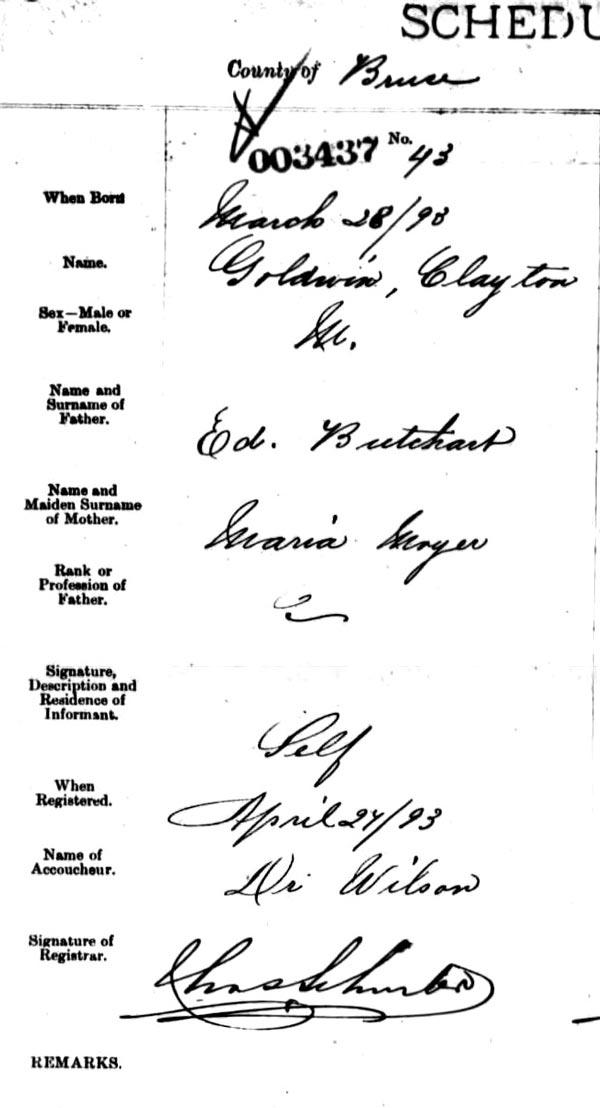 SCHEDU
County of Bruce
003437 No. 43
When Born March 28/93
Name. Goldwin, Clayton
Sex—Male or
Female. M.
Name and
Surname of
Father. Ed. Butchart
Name and
Maiden Surname
of Mother. Maria Moyer
Rank or
Profession of
Father.
Signature,
Description and
Residence of
Informant. Self
When
Registered. April 27/93
Name of
Accoucheur. Dr Wilson
Signature of
Registrar. Chas
REMARKS.